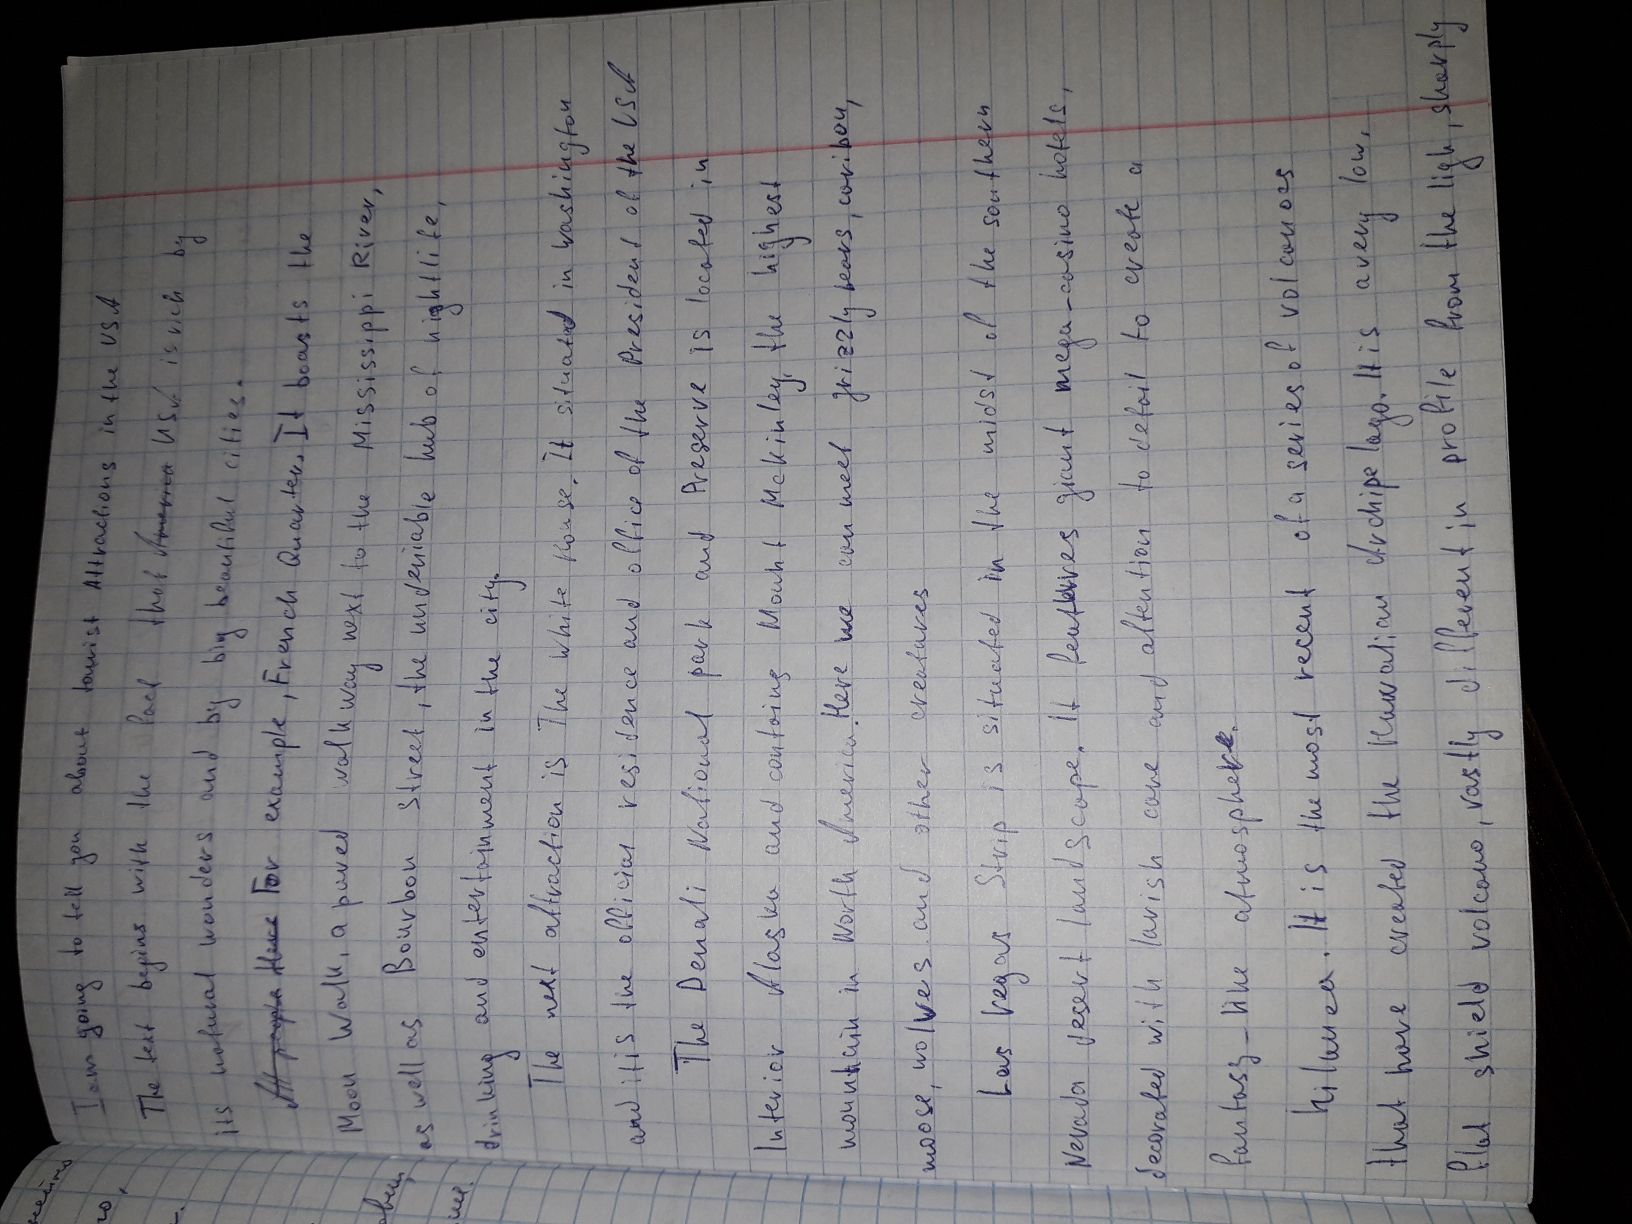 I am going to tell you about tourist Attractions in the USA
The text begins with the fact that America USA is rich by
its natural wonders and by big beautiful cities.
All people these For example, French Quarter. It boasts the
Moon Walk, a paved walkway next to the Mississippi River,
as well as Bourbon Street, the undeniable hub of nightlife,
drinking and entertainment in the city.
The next attraction is The White House. It situated in Washington
and it is the official residence and office of the President of the USA
The Denali National park and Preserve is located in
Interior Alaska and containg Mount Mckinley, the highest
mountain in North America. Here we can meet grizzly bears, caribou,
moose, wolves and other creatures
Las Vegas Strip is situated in the midst of the southern
Nevada desert landscape. It features giant mega-casino hotels,
decorated with lavish care and attention to detail to create a
fantasy-like atmosphere.
Kilauea. It is the most recent of a series of volcanoes
that have created the Hawaiian Archipelago. It is a very low,
flat shield volcano, vastly different in profile from the ligh, sharply